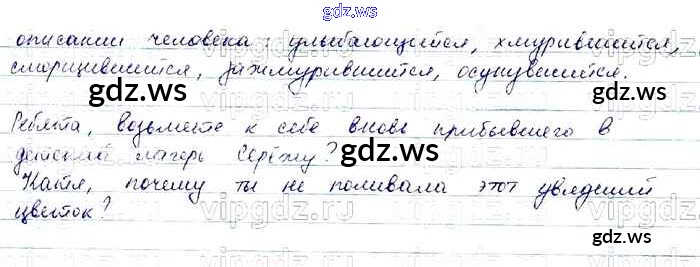 gdz.ws
описании человека: улыбающийся, хмурившийся,
сморщившийся, зажмурившийся, осунувшийся.
gdz.ws
gdz.ws
Ребята, возьмете к себе вновь прибывшего в
детский лагерь Серёжу?
Катя, почему ты не поливала этот увядший
цветок?
vipgdz.ru